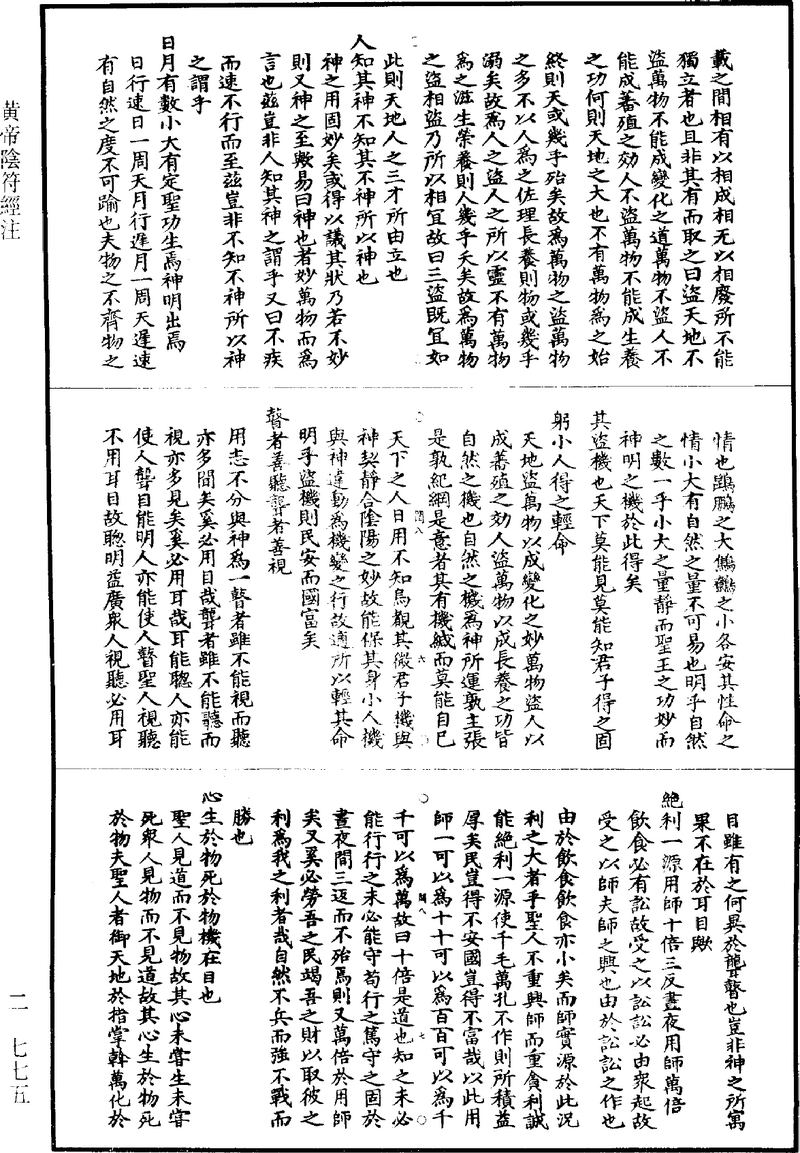 載之間相有以相成相无以相廢所不能
獨立者也且非其有而取之曰盜天地不
盜萬物不能成變化之道萬物不盜人不
能成蕃殖之効人不盜萬物不能成生養
之功何則天地之大也不有萬物為之始
終則天或幾乎殆矣故為萬物之盜萬物
之多不以人為之佐理長養則物或幾乎
溺矣故為人之盜人之所以靈不有萬物
為之滋生榮養則人幾乎夭矣故為萬物
之盜相盜乃所以相宜故曰三盜既宜如
此則天地人之三才所由立也
人知其神不知其不神所以神也
神之用固妙矣或得以議其狀乃若不妙
則又神之至歟易曰神也者妙萬物而為
言也茲豈非人知其神之謂乎又曰不疾
而速不行而至茲豈非不知不神所以神
之謂乎
日月有數小大有定聖功生焉神明出焉
日行速日一周天月行遲月一周天遲速
有自然之度不可踰也夫物之不齊物之
情也鵾鵬之大鷦鷯之小各安其性命之
情小大有自然之量不可易也明乎自然
之數一乎小大之量靜而聖王之功妙而
神明之機於此得矣
其盜機也天下莫能見莫能知君子得之固
躬小人得之輕命
天地盜萬物以成變化之妙萬物盜人以
成蕃殖之効人盜萬物以成長養之功皆
自然之機也自然之機為神所運孰主張
是孰紀綱是意者其有機緘而莫能自已
天下之人日用不知烏觀其微君子機與
神契靜合陰陽之妙故能保其身小人機
與神違動為機變之行故適所以輕其命
明乎盜機則民安而國富矣
瞽者善聽聾者善視
用志不分與神為一瞽者雖不能視而聽
亦多聞矣奚必用目哉聾者雖不能聽而
視亦多見矣奚必用耳哉耳能聰人亦能
使人聾目能明人亦能使人瞽聖人視聽
不用耳目故聰明益廣衆人視聽必用耳
目雖有之何異於聾瞽也豈非神之所寓
果不在於耳目歟
絕利一源用師十倍三反晝夜用師萬倍
飲食必有訟故受之以訟訟必由衆起故
受之以師夫師之興也由於訟訟之作也
由於飲食飲食亦小矣而師實源於此況
利之大者乎聖人不重興師而重貪利誠
能絕利一源使千毛萬孔不作則所積益
厚矣民豈得不安國豈得不富哉以此用
師一可以為十十可以為百百可以為千
千可以為萬故曰十倍是道也知之未必
能行行之未必能守苟行之篤守之固於
晝夜間三返而不殆焉則又萬倍於用師
矣又奚必勞吾之民竭吾之財以取彼之
利為我之利者哉自然不兵而強不戰而
勝也
心生於物死於物機在目也
聖人見道而不見物故其心未嘗生未嘗
死衆人見物而不見道故其心生於物死
於物夫聖人者御天地於指掌斡萬化於
黃帝陰符經注
二 七七五